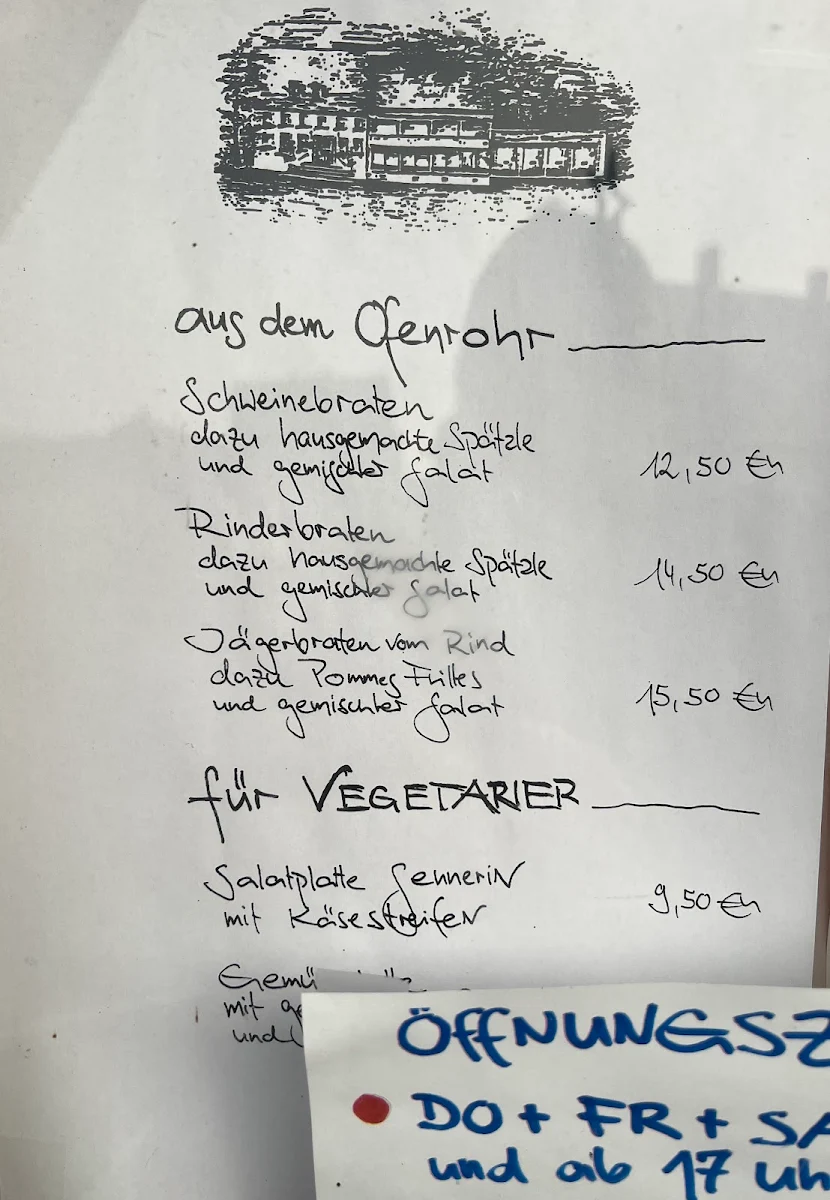 aus dem Ofenrohr
Schweinebraten
dazu hausgemachte Spätzle
und gemischter Salat 12,50 €n
Rinderbraten
dazu hausgemachte Spätzle
und gemischter Salat 14,50 €n
Jägerbraten vom Rind
dazu Pommes Frittes
und gemischter Salat 15,50 €n
für VEGETARIER
Salatplatte Sennerin
mit Käsestreifen 9,50 €n
Gemü
mit ge
und
ÖFFNUNGSZ
DO + FR + SA
und ab 17 Uh